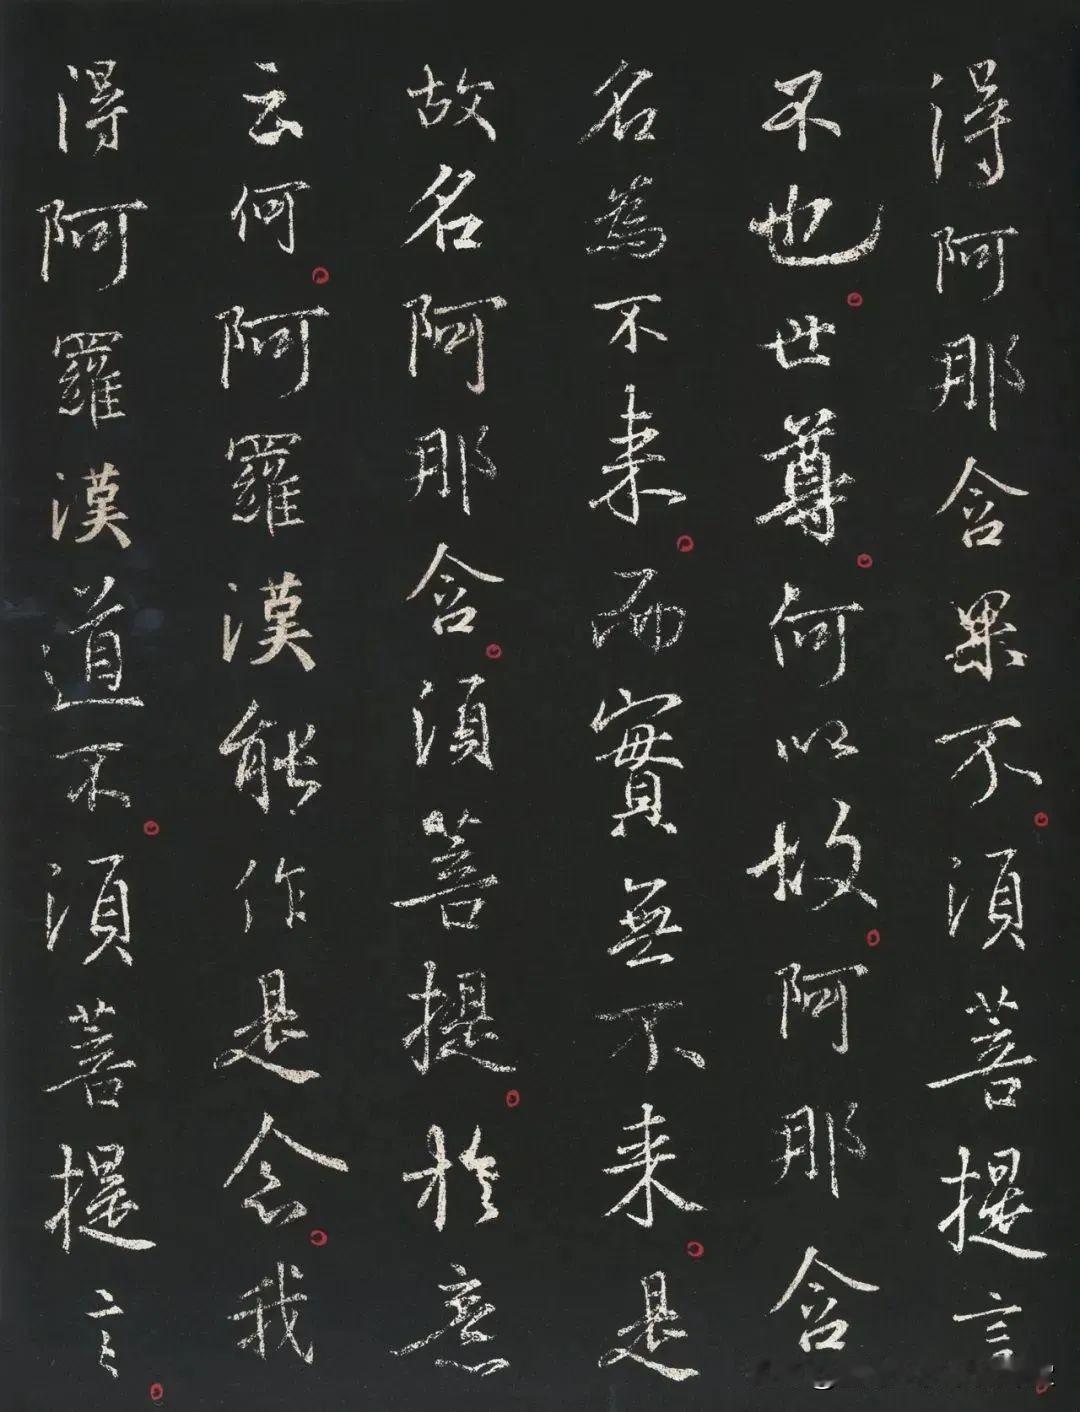 得阿那含果不須菩提言
不也世尊何以故阿那含
名為不来而實無不来是
故名阿那含須菩提於意
云何阿羅漢能作是念我
得阿羅漢道不須菩提言